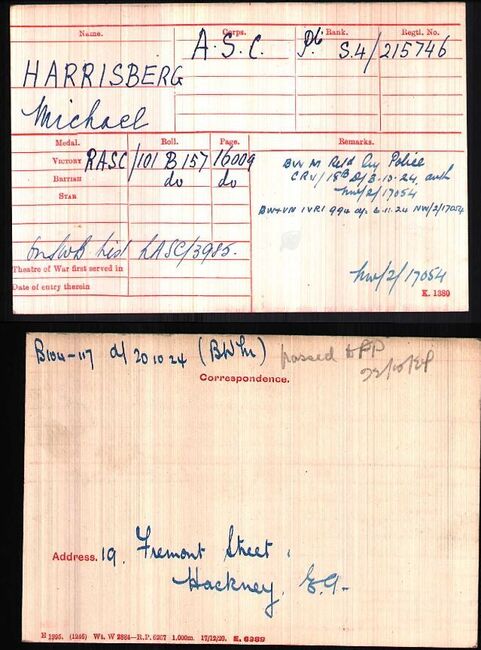 Name.
Corps.
Rank.
Regtl. No.
A.S.C.
Pte
S.4/215746
HARRISBERG
Michael
Medal.
Roll.
Page.
Remarks.
VICTORY
RASC/101 B 157
16009
BRITISH
do
do
STAR
BW M Retd by Police
CRV/15B D/8.10.24, auth
NW/2/17054
BW+VM IVR1 994 d/. 6.11.24 NW/2/17054
list RASC/3985.
Theatre of War first served in
Date of entry therein
NW/2/17054
K. 1380
B104-117 d/ 20 10 24 (BW M)
passed to
Correspondence.
Address.
19, Fremont Street,
Hackney, E.9.
E 1995. (1246) Wt. W 2884—R.P. 6267 1,000m. 17/12/20. E. 6989